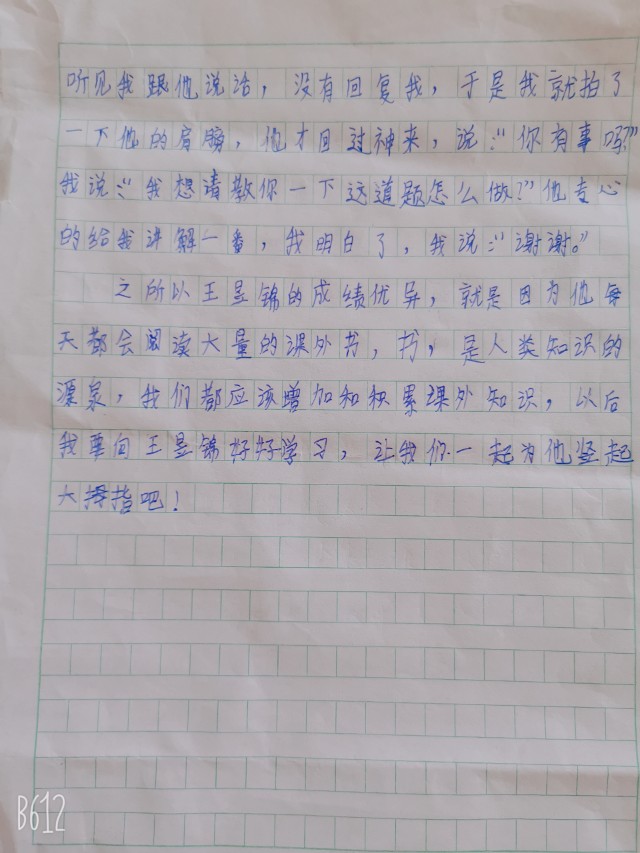 听见我跟他说话，没有回复我，于是我就拍了
一下他的肩膀，他才回过神来，说：“你有事吗？”
我说：“我想请教你一下这道题怎么做？”他专心
的给我讲解一番，我明白了，我说：“谢谢。”
之所以王昱锦的成绩优异，就是因为他每
天都会阅读大量的课外书，书，是人类知识的
源泉，我们都应该增加和积累课外知识，以后
我要向王昱锦好好学习，让我们一起为他竖起
大拇指吧！
B612